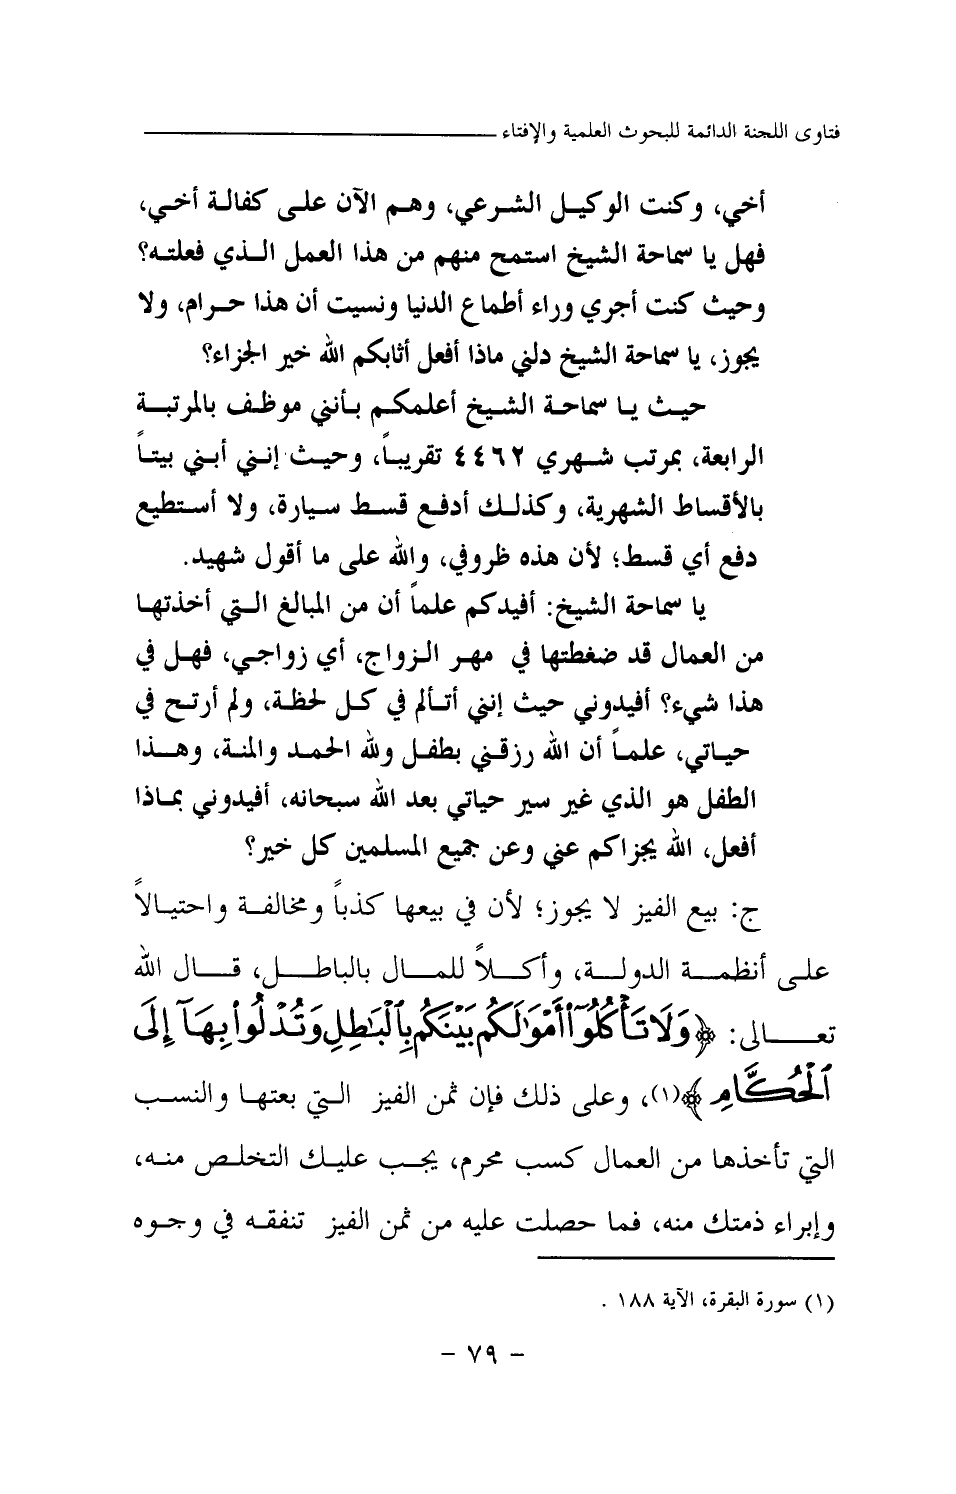 فتاوى اللجنة الدائمة للبحوث العلمية والإفتاء
أخي، وكنت الوكيل الشرعي، وهم الآن على كفالة أخي،
فهل يا سماحة الشيخ استمح منهم من هذا العمل الذي فعلته؟
وحيث كنت أجري وراء أطماع الدنيا ونسيت أن هذا حرام، ولا
يجوز، يا سماحة الشيخ دلني ماذا أفعل أثابكم الله خير الجزاء؟
حيث يا سماحة الشيخ أعلمكم بأنني موظف بالمرتبة
الرابعة، بمرتب شهري ٤٤٦٢ تقريباً، وحيث إنني أبني بيتاً
بالأقساط الشهرية، وكذلك أدفع قسط سيارة، ولا أستطيع
دفع أي قسط؛ لأن هذه ظروفي، والله على ما أقول شهيد.
يا سماحة الشيخ: أفيدكم علماً أن من المبالغ التي أخذتها
من العمال قد ضغطتها في مهر الزواج، أي زواجي، فهل في
هذا شيء؟ أفيدوني حيث إنني أتألم في كل لحظة، ولم أرتح في
حياتي، علماً أن الله رزقني بطفل ولله الحمد والمنة، وهذا
الطفل هو الذي غير سير حياتي بعد الله سبحانه، أفيدوني بماذا
أفعل، الله يجزاكم عني وعن جميع المسلمين كل خير؟
ج: بيع الفيز لا يجوز؛ لأن في بيعها كذباً ومخالفة واحتيالاً
على أنظمة الدولة، وأكلاً للمال بالباطل، قال الله
تعالى: ﴿وَلَا تَأْكُلُوٓا۟ أَمْوَٰلَكُم بَيْنَكُم بِٱلْبَٰطِلِ وَتُدْلُوا۟ بِهَآ إِلَى
ٱلْحُكَّامِ﴾(١)، وعلى ذلك فإن ثمن الفيز التي بعتها والنسب
التي تأخذها من العمال كسب محرم، يجب عليك التخلص منه،
وإبراء ذمتك منه، فما حصلت عليه من ثمن الفيز تنفقه في وجوه
(١) سورة البقرة، الآية ١٨٨ .
- ٧٩ -